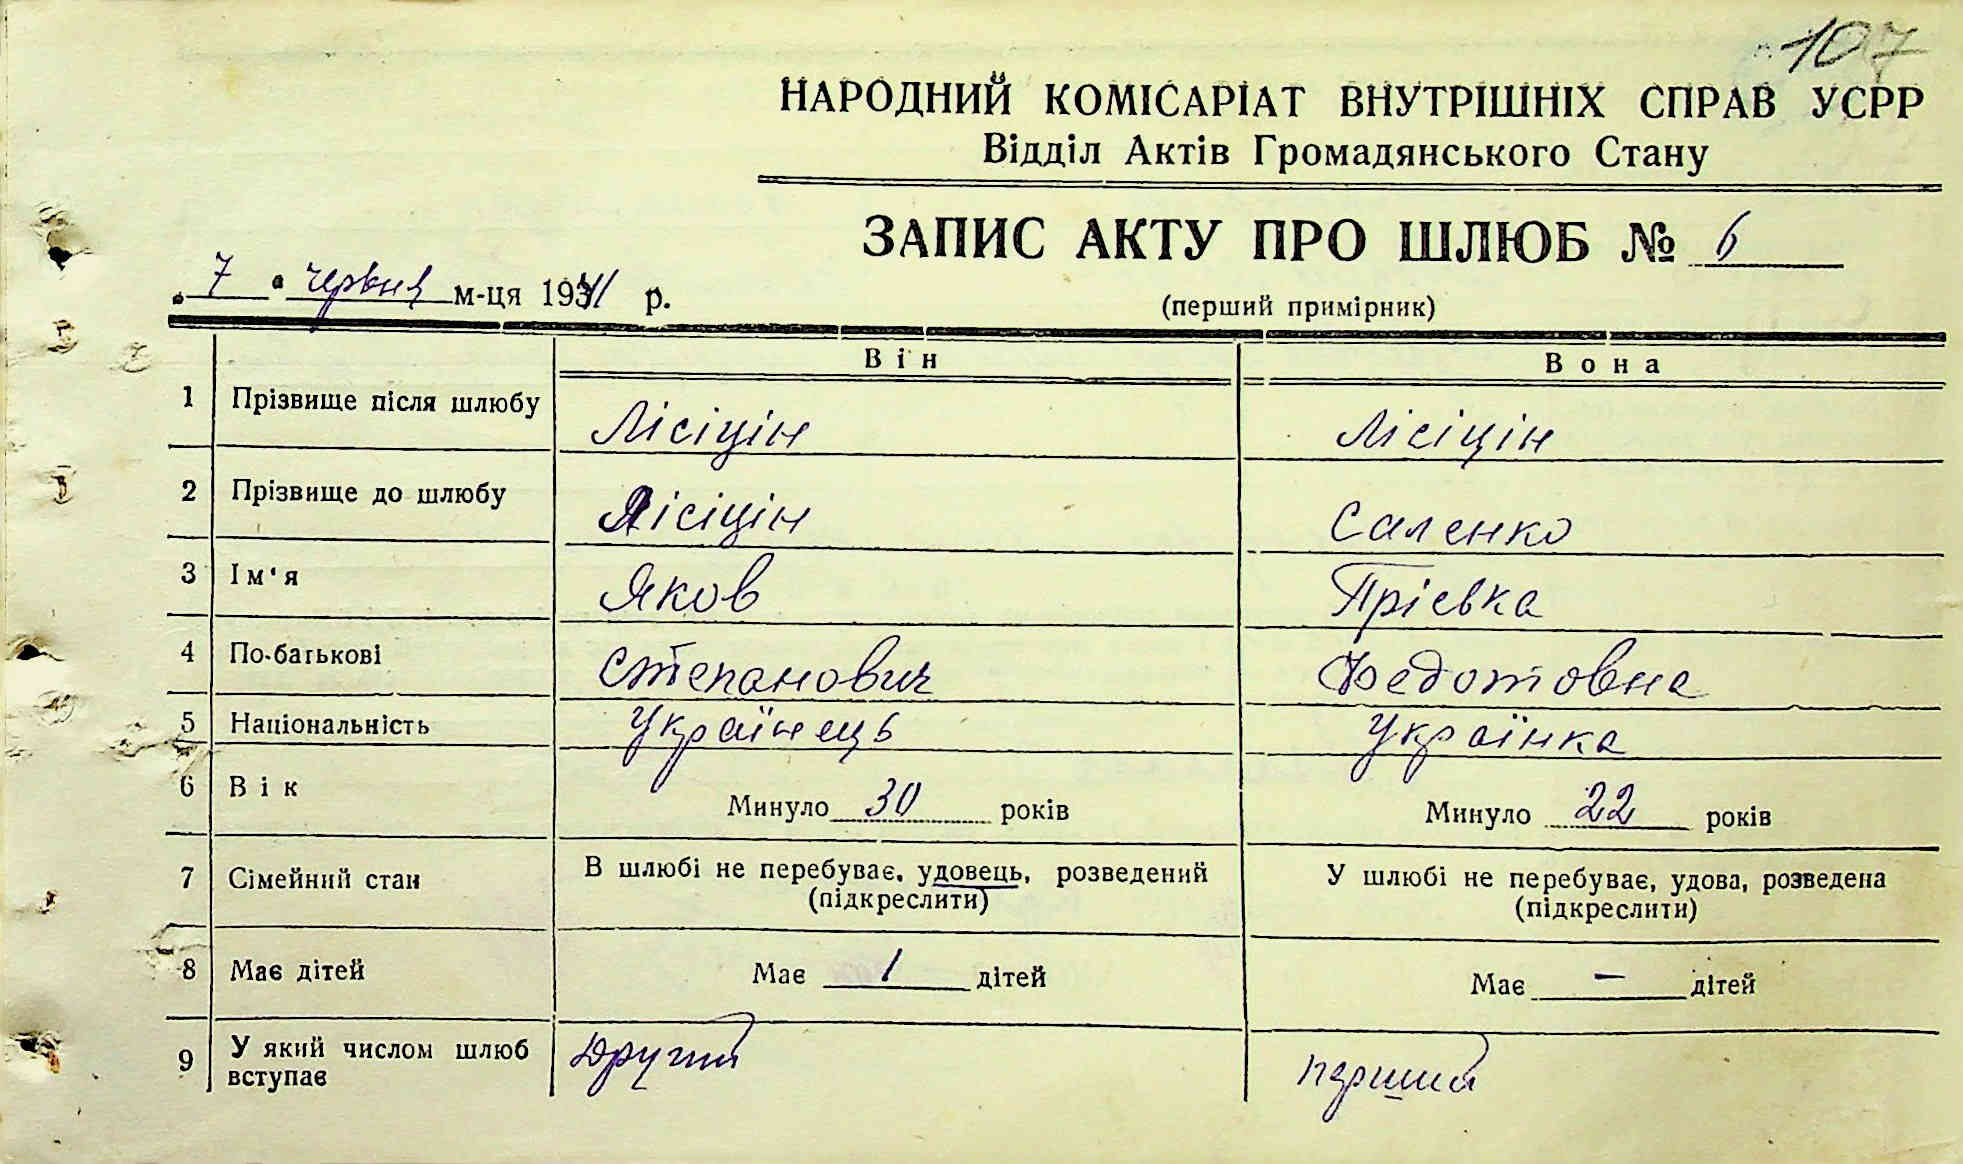 107
НАРОДНИЙ КОМІСАРІАТ ВНУТРІШНІХ СПРАВ УСРР
Відділ Актів Громадянського Стану
ЗАПИС АКТУ ПРО ШЛЮБ № 6
„ 7 " червня м-ця 1931 р.
(перший примірник)
Він Вона
1 Прізвище після шлюбу Лісіцін Лісіцін
2 Прізвище до шлюбу Лісіцін Саленко
3 Ім'я Яков Прісвка
4 По-батькові Степанович Федотовна
5 Національність Українець Українка
6 Вік Минуло 30 років Минуло 22 років
7 Сімейний стан В шлюбі не перебуває, удовець, розведений У шлюбі не перебуває, удова, розведена
(підкреслити) (підкреслити)
8 Має дітей Має 1 дітей Має — дітей
9 У який числом шлюб вступає Другий перший